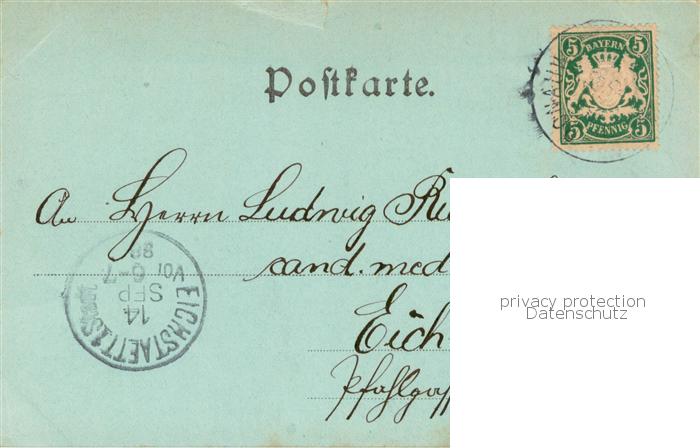 Postkarte.
5 BAYERN 5
5 PFENNIG 5
An Herrn Ludwig
cand. med
Eich
Pfahlgas
EICHSTAETT
14
SEP
6-7
Vor
98
privacy protection
Datenschutz